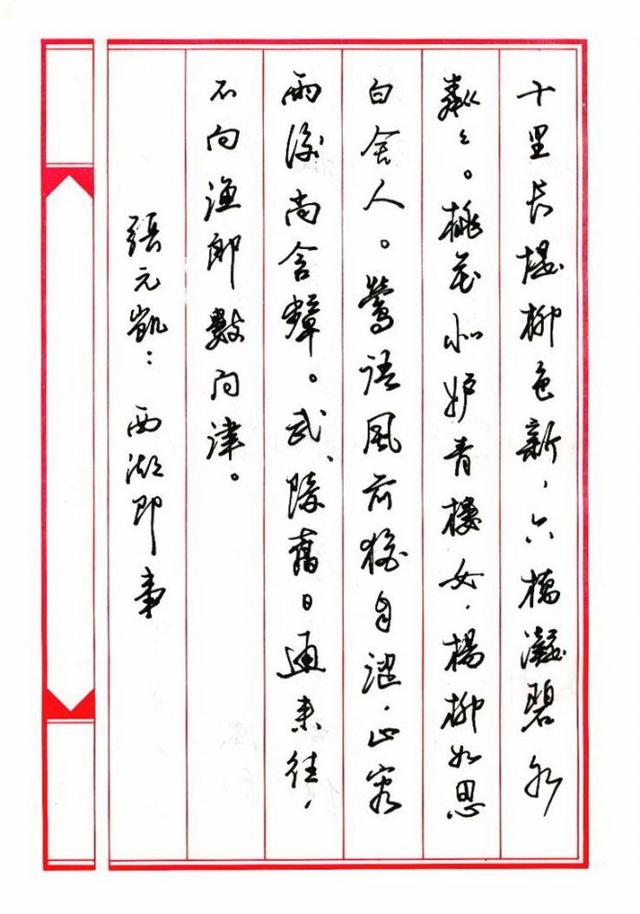 十里长堤柳色新，六橋凝碧水
粼々。桃花似妒青楼女，楊柳如思
白舍人。鶯语風前猶自澀，山容
雨後尚含颦。武陵舊日通来往，
不向渔郎數问津。
張元凯：西湖即事